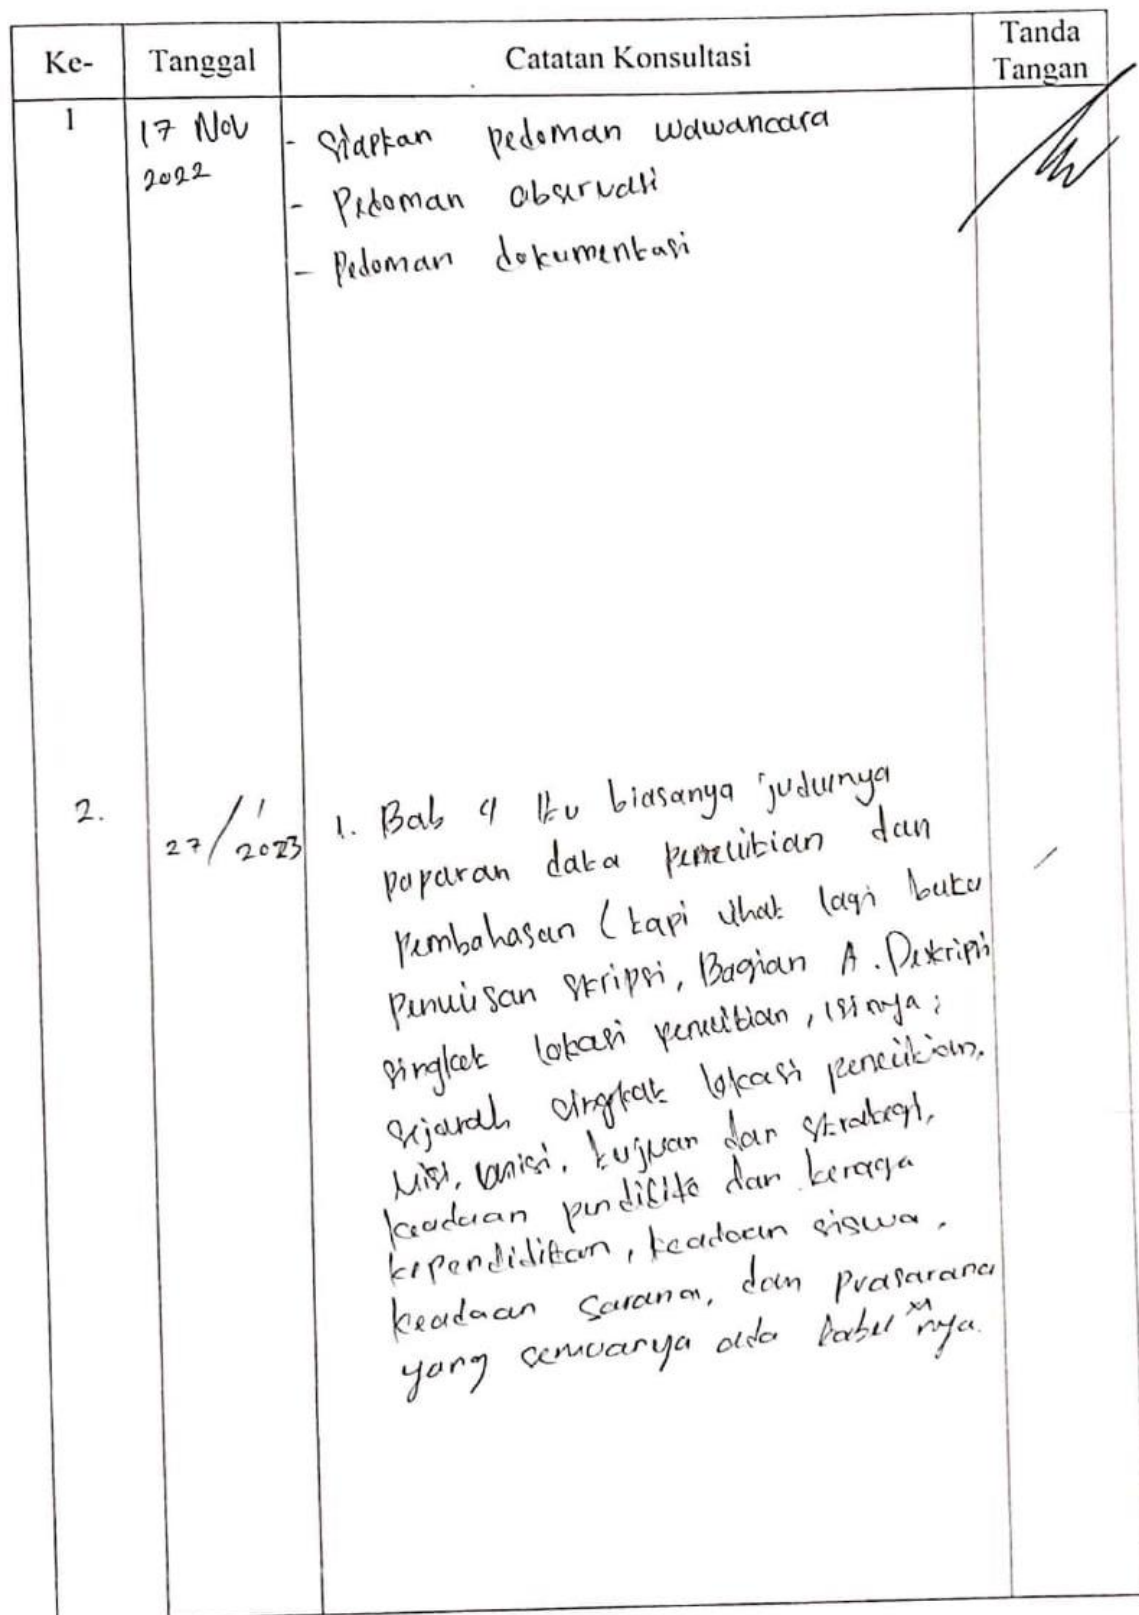 Ke- Tanggal Catatan Konsultasi Tanda Tangan
1 17 Nov 2022 - Siapkan pedoman wawancara
- Pedoman observasi
- Pedoman dokumentasi
2. 27/1 2023 1. Bab 4 itu biasanya judulnya
paparan data penelitian dan
pembahasan (tapi lihat lagi buku
penulisan skripsi, Bagian A. Deskripsi
singkat lokasi penelitian, isinya;
sejarah singkat lokasi penelitian,
tujuan dan strategi,
keadaan pendidik dan
kependidikan, keadaan siswa,
keadaan sarana, dan prasarana
yang semuanya ada tabel nya.